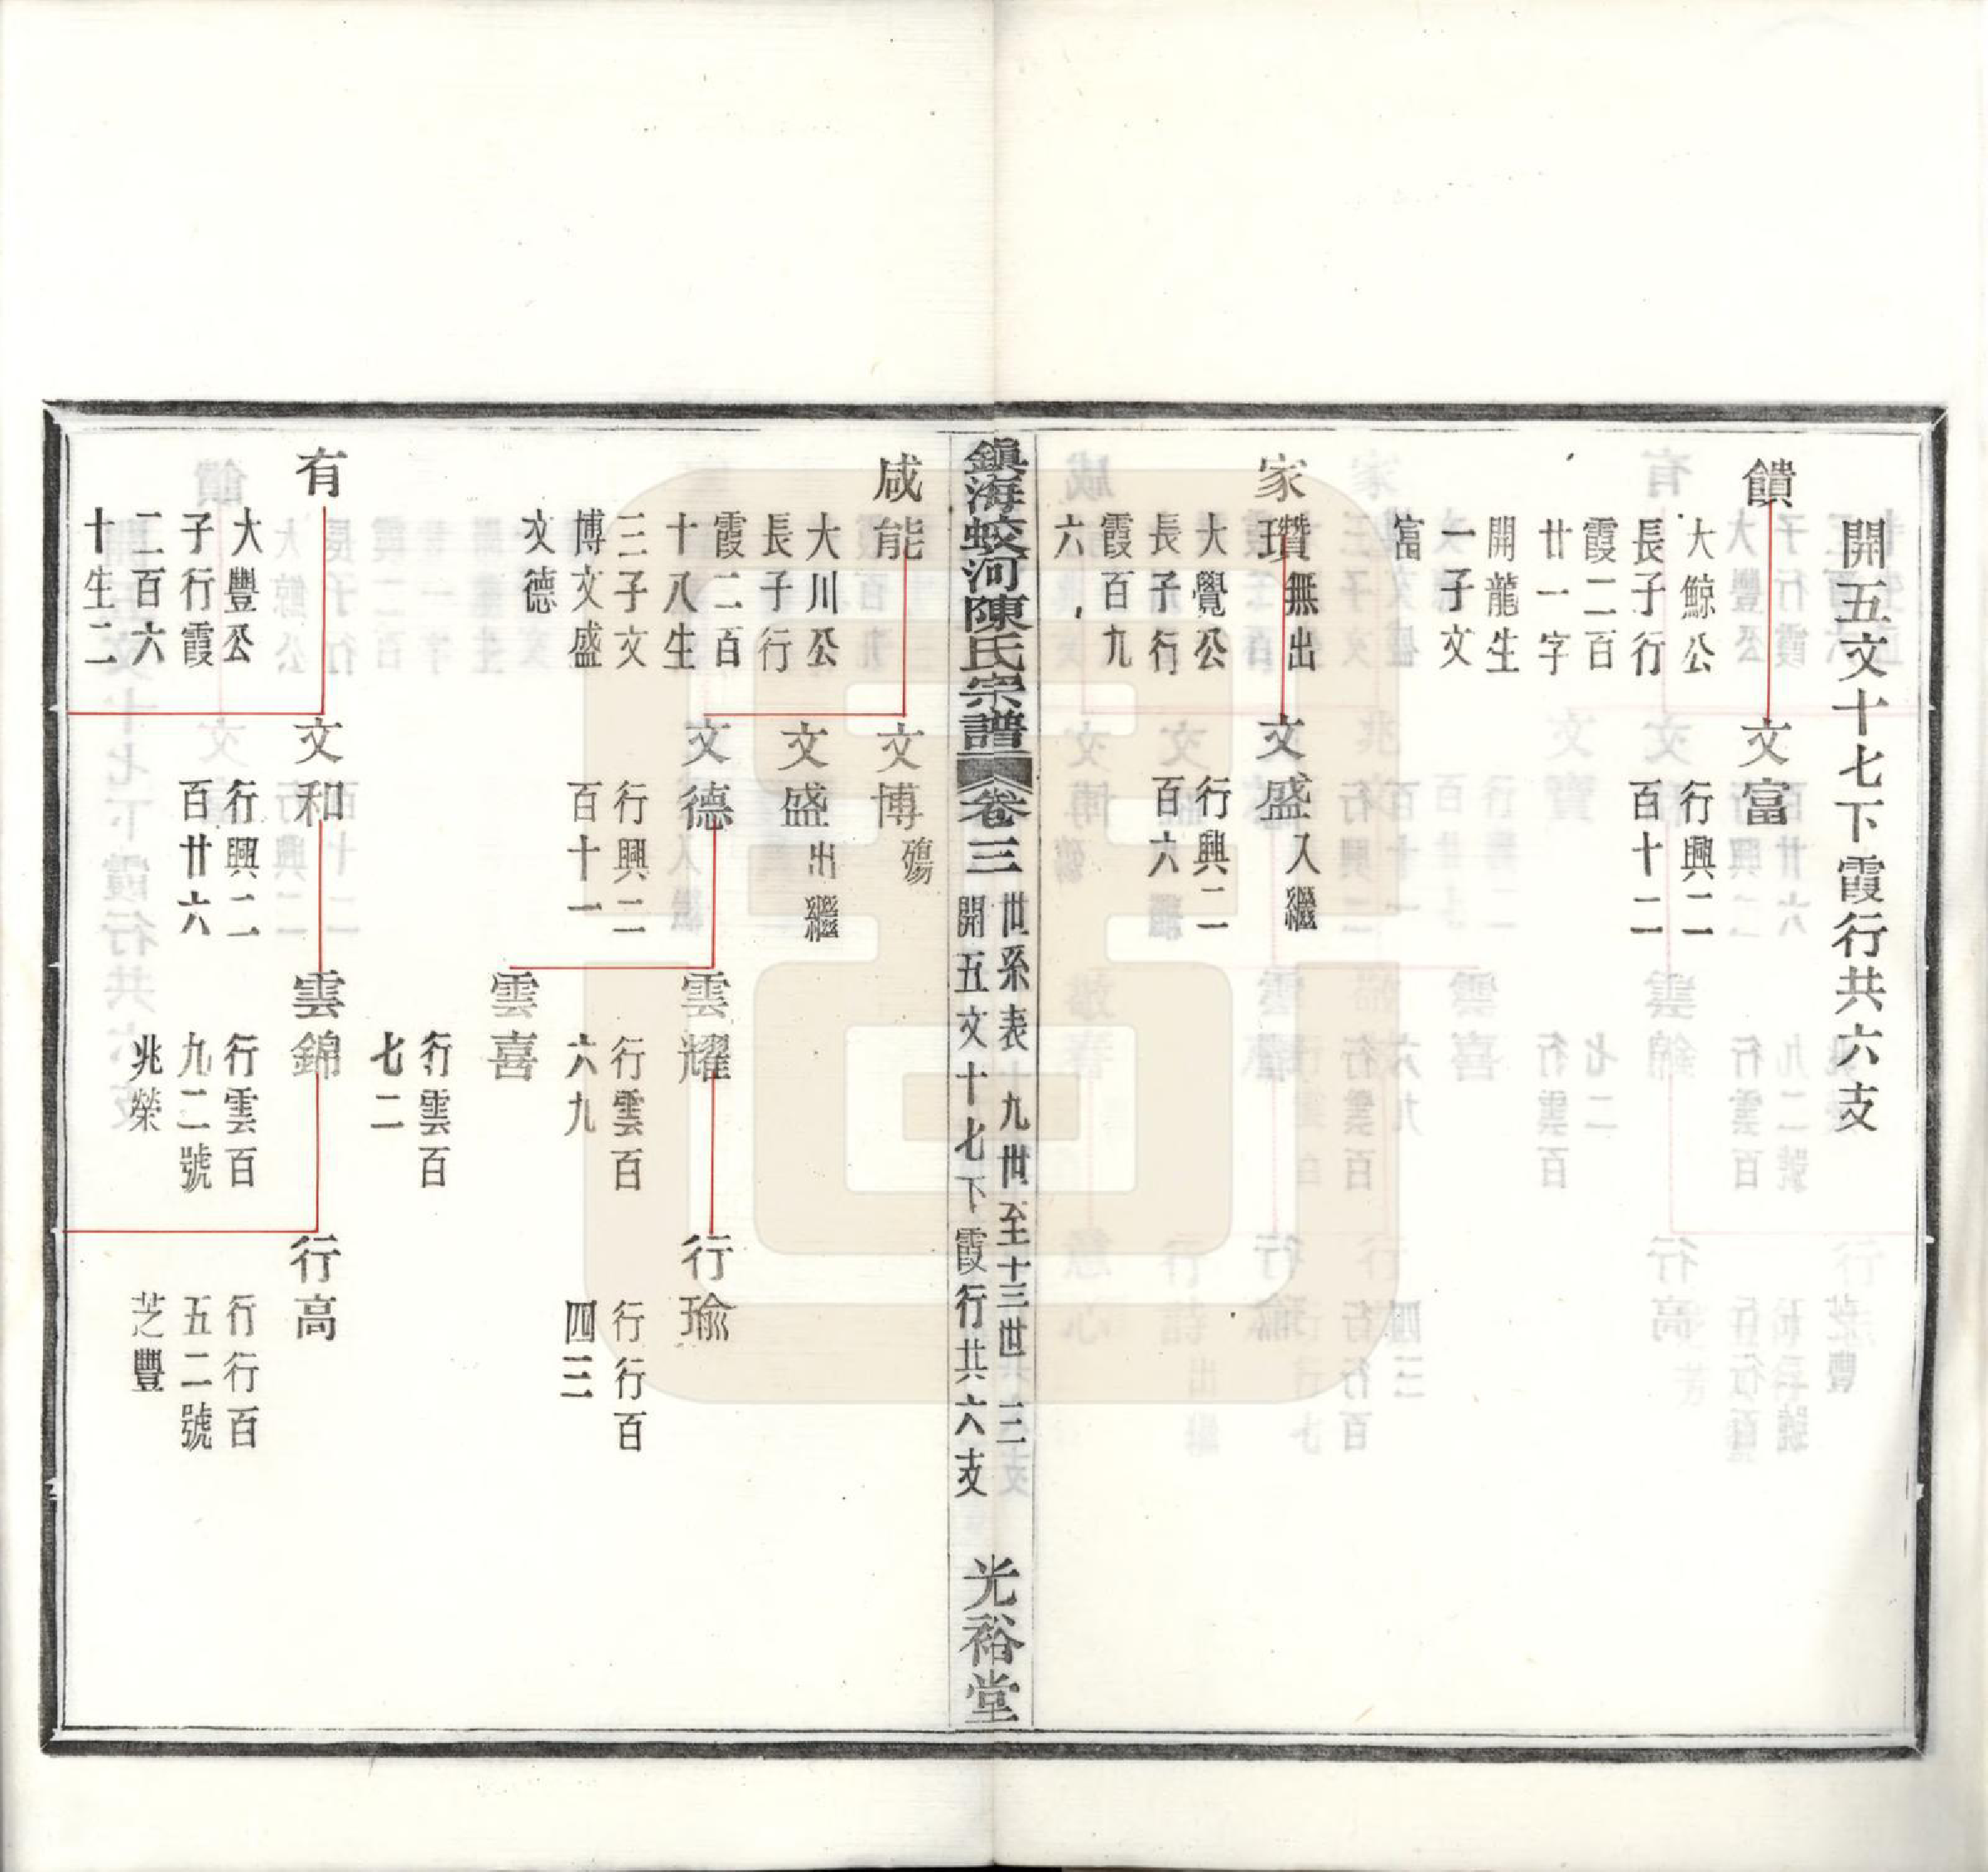 開五文十七下霞行共六支
饋
大鯨公
長子行
霞二百
廿一字
開龍生
一子文
富
文富
行興二
百十二
家瓚
無出
大覺公
長子行
霞百九
六
文盛
入繼
行興二
百六
鎮海蛟河陳氏宗譜
卷三
世系表
十九世至十三世
三
開五文十七下霞行共六支
光裕堂
咸能
大川公
長子行
霞二百
十八生
三子文
博文盛
文德
文博
殤
文盛
出繼
文德
行興二
百十一
雲耀
行雲百
六九
行瑜
行行百
四三
雲喜
行雲百
七二
有
大豐公
子行霞
二百六
十生二
文和
行興二
百廿六
雲錦
行雲百
九二號
兆榮
行高
行行百
五二號
芝豐